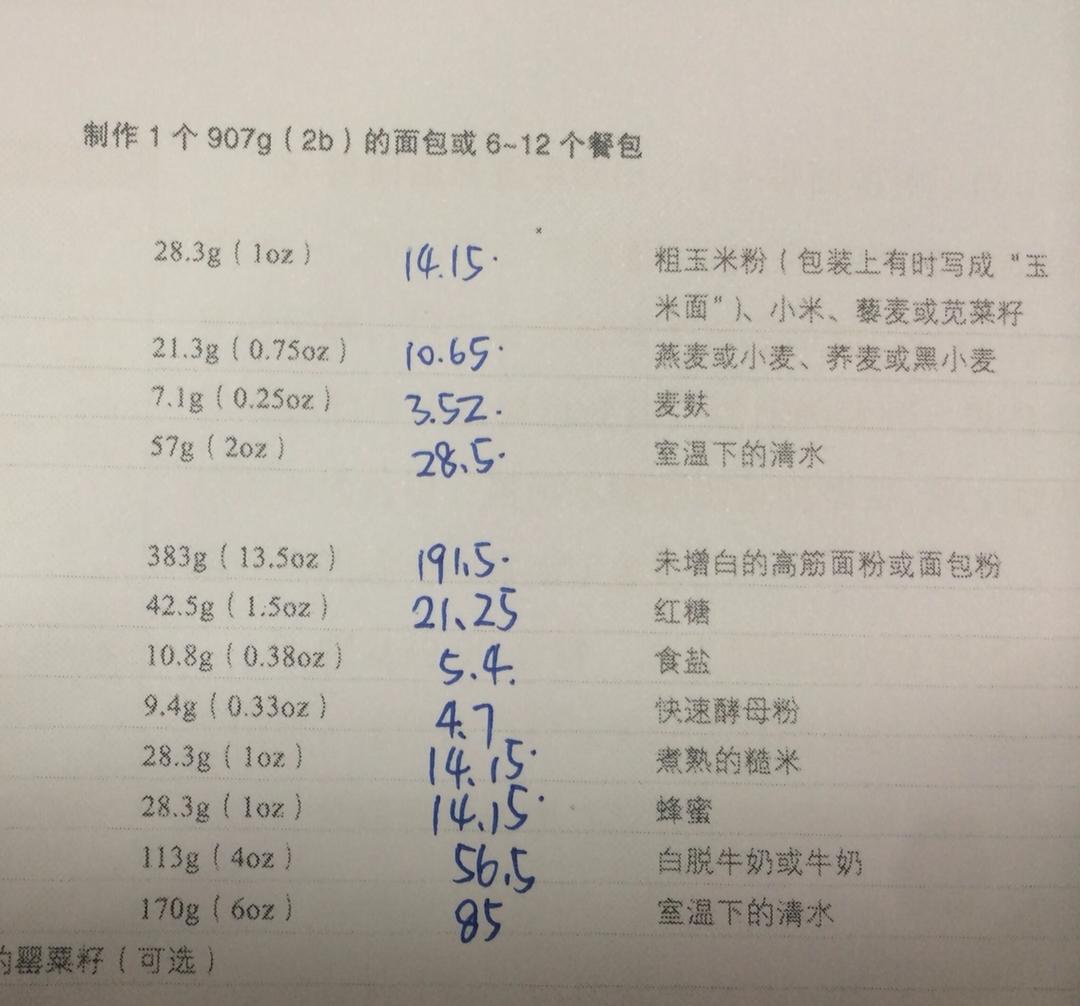 制作 1 个 907g（2b）的面包或 6~12 个餐包
28.3g（1oz） 14.15· 粗玉米粉（包装上有时写成“玉
米面”）、小米、藜麦或苋菜籽
21.3g（0.75oz） 10.65· 燕麦或小麦、荞麦或黑小麦
7.1g（0.25oz） 3.52. 麦麸
57g（2oz） 28.5· 室温下的清水
383g（13.5oz） 191.5· 未增白的高筋面粉或面包粉
42.5g（1.5oz） 21.25 红糖
10.8g（0.38oz） 5.4. 食盐
9.4g（0.33oz） 4.7 快速酵母粉
28.3g（1oz） 14.15· 煮熟的糙米
28.3g（1oz） 14.15· 蜂蜜
113g（4oz） 56.5 白脱牛奶或牛奶
170g（6oz） 85 室温下的清水
的罂粟籽（可选）